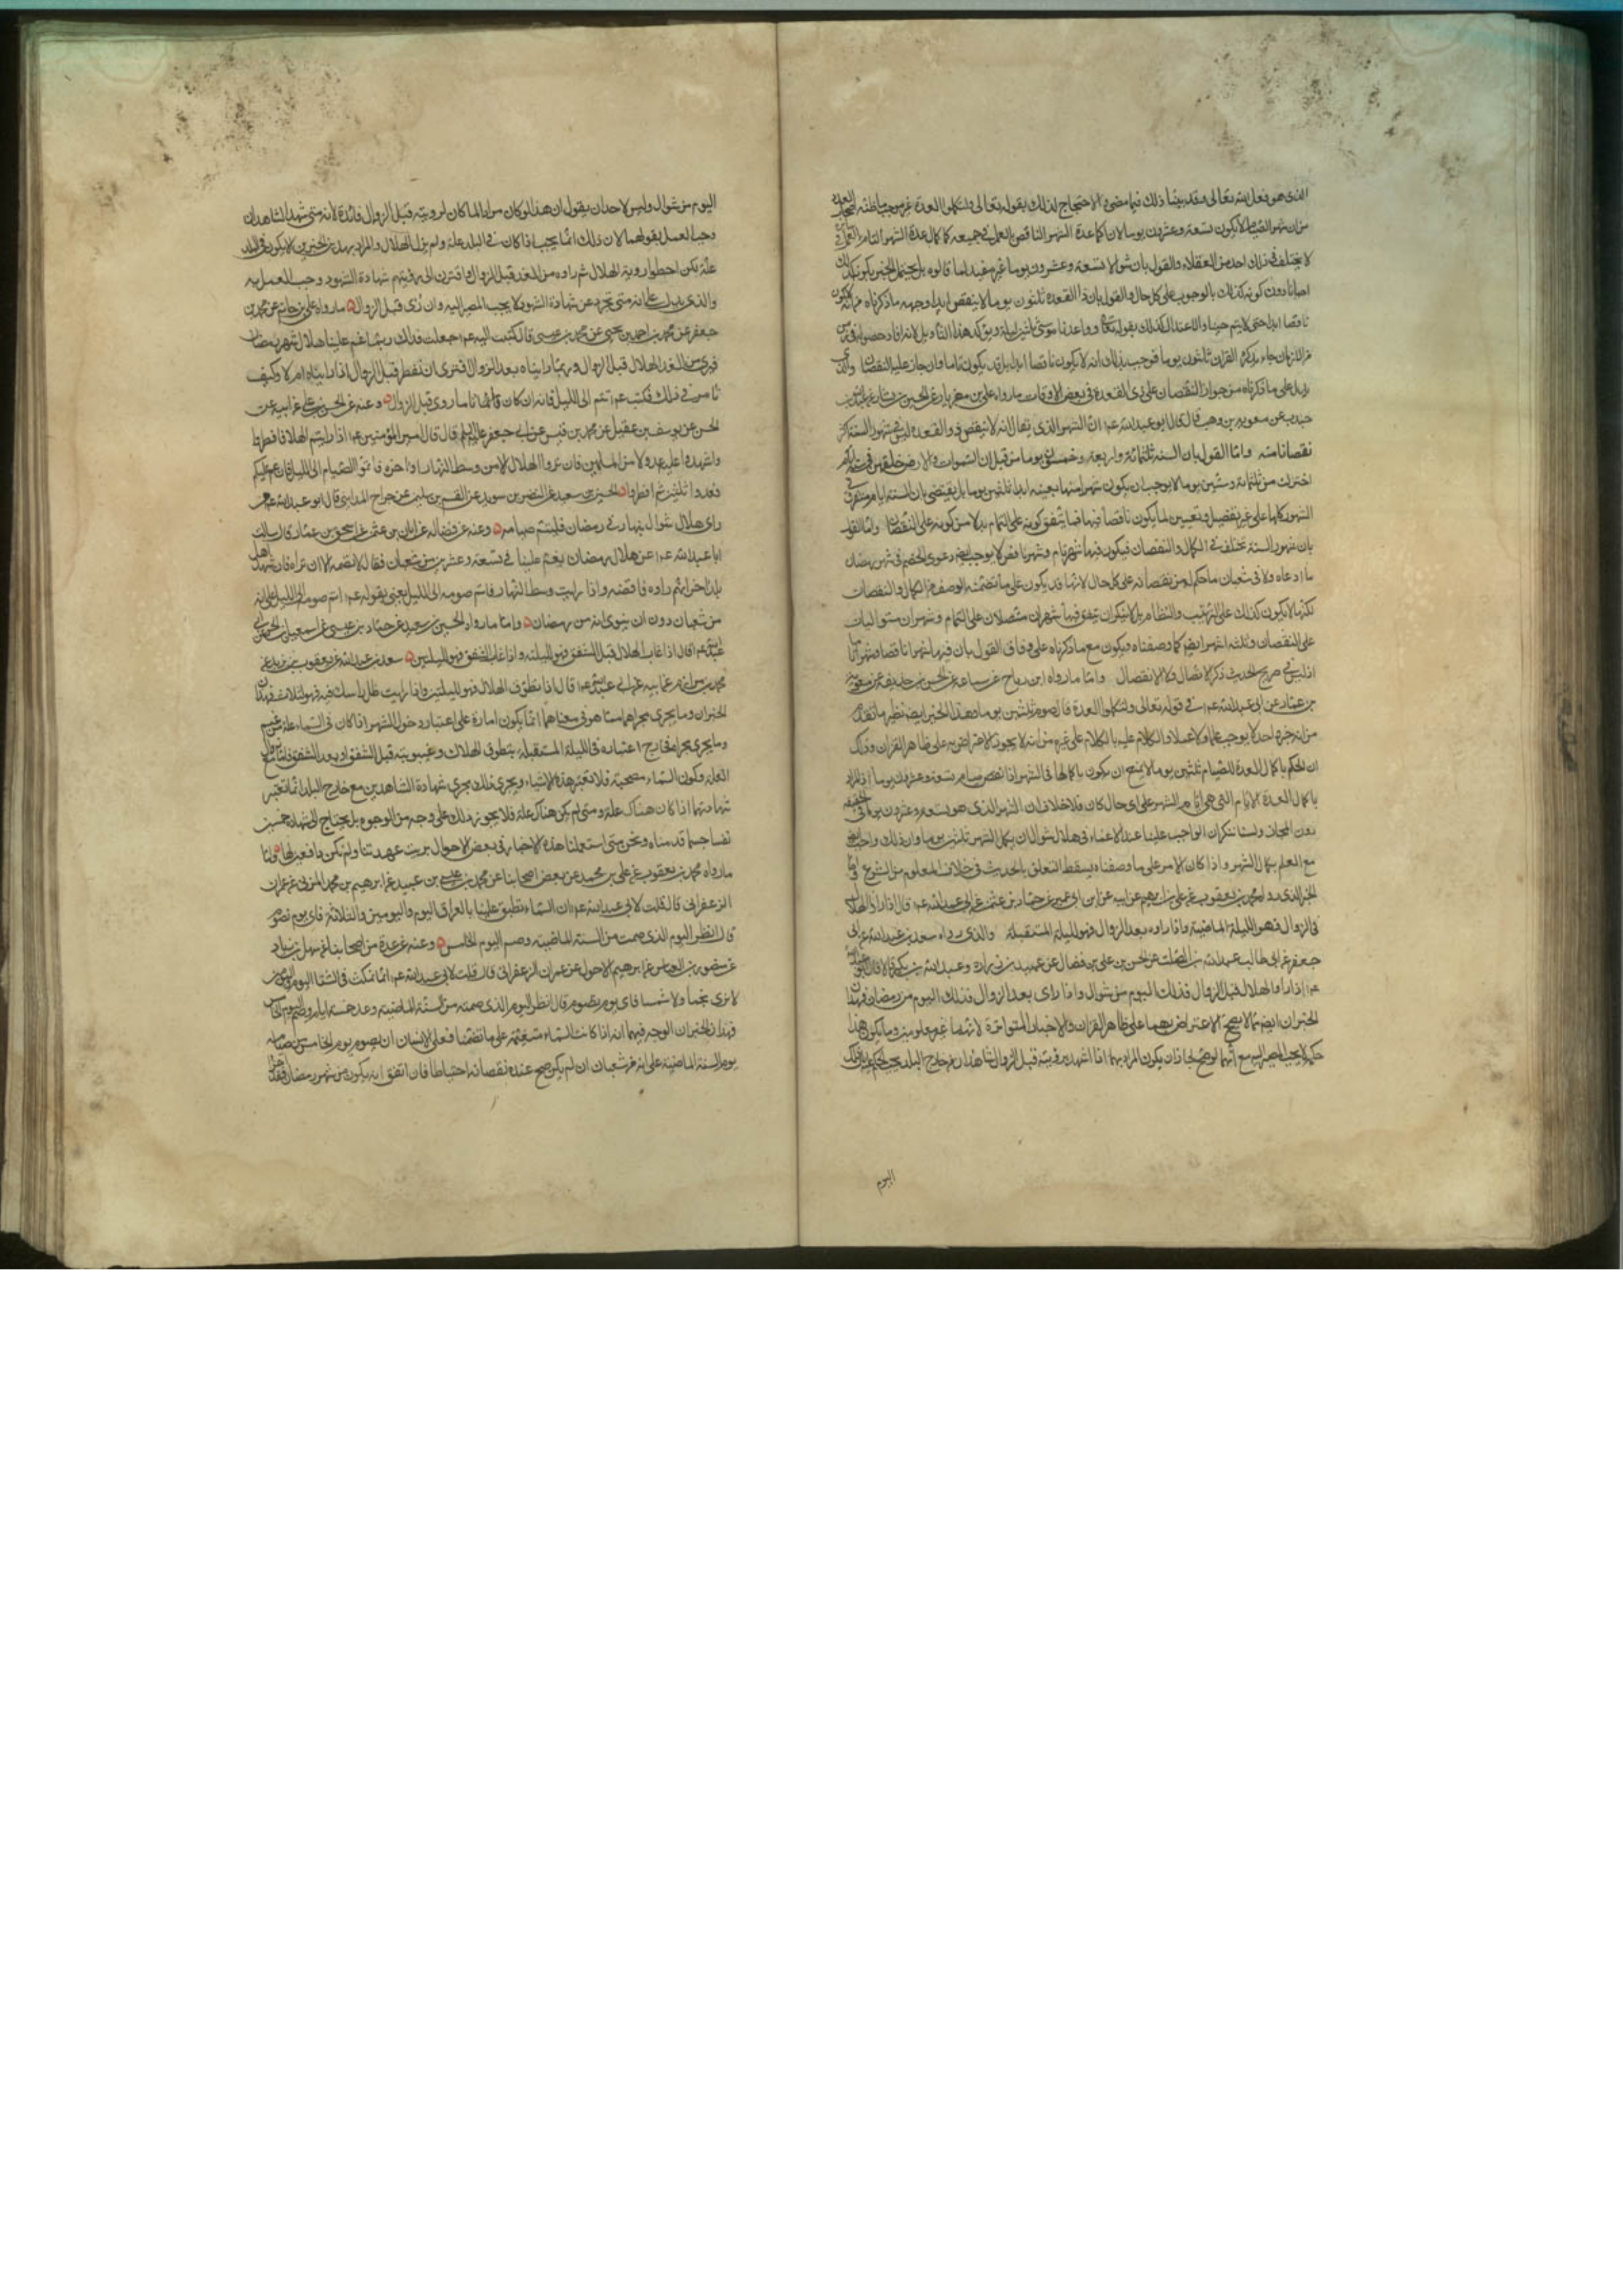 الذى هو فعل الله تعالى وقد بينا ذلك فيما مضى والاحتجاج لذلك بقوله تعالى ولتكملوا العدة غير موجب ما ظنه
من ان شهر الصيام لا يكون تسعة وعشرين يوما لان اكمال عدة الشهر الناقص بالعمل فى جميعه كاكمال عدة الشهر التام بالعمل فى
لا يختلف فى ذلك احد من العقلاء والقول بان شوالا تسعة وعشرون يوما غير مفيد لما قالوه بل يحتمل الخبر بكونه كذلك
احيانا دون كونه كذلك بالوجوب على كل حال والقول بان ذا القعدة ثلثون يوما لا ينقص ابدا وجهه ما ذكرناه من انه لا يكون
ناقصا ابدا حتى لا يتم حينا والاعتلال لذلك بقوله تعالى وواعدنا موسى ثلثين ليلة ويؤكد هذا التاويل لانه افاد حصوله فى زمن
من الازمان جاء بذكره القران ثلثون يوما فوجب بذلك انه لا يكون ناقصا ابدا بل قد يكون تاما وان جاز عليه النقصان والذى
يدل على ما ذكرناه من جواز النقصان على ذى القعدة فى بعض الاوقات ما رواه على بن مهزيار عن الحسين بن بشار عن عبد الله بن
جندب عن معوية بن وهب قال قال ابو عبد الله عم ان الشهر الذى يقال انه لا ينقص ذو القعدة ليس فى شهور السنة اكثر
نقصانا منه واما القول بان السنة ثلثمائة واربعة وخمسون يوما من قبل ان السموات والارض خلقهن فى ستة ايام
اختزلت من ثلثمائة وستين يوما لا يوجب ان يكون شهر منها بعينه ابدا ثلثين يوما بل يقتضى بان الستة ايام متفرقة فى
الشهور كلها على غير تفصيل وتعيين لما يكون ناقصا منها مما يتفق كونه على التمام بدلا من كونه على النقصان واما القول
بان شهور السنة تختلف فى الكمال والنقصان فيكون فيها شهر تام وشهر ناقص لا يوجب ايضا دعوى الخصم فى شهر رمضان
ما ادعاه ولا فى شعبان ما حكم به من نقصانه على كل حال لانها قد يكون على ما تضمنه الوصف من الكمال والنقصان
لكنها لا يكون كذلك على الترتيب والنظام بل لا ينكر ان يتفق فيها شهران متصلان على التمام وشهران متواليان
على النقصان وثلثة اشهر ايضا كما وصفناه ويكون مع ما ذكرناه على وفاق القول بان فيها شهرا ناقصا وشهرا تاما
اذ ليس فى صريح الحديث ذكر الاتصال ولا الانفصال واما ما رواه ابن رباح عن سماعة عن الحسن بن حذيفة عن معوية
بن عمار عن ابى عبد الله عم فى قوله تعالى ولتكملوا العدة قال صوم ثلثين يوما وهذا الخبر ايضا نظير ما تقدم
من انه خبر واحد لا يوجب علما ولا عملا والكلام عليه كالكلام على غيره من انه لا يجوز الاعتراض به على ظاهر القران وذلك
ان الحكم باكمال العدة للصيام ثلثين يوما لا يمنع ان يكون باكمالها فى الشهر اذا نقص صيام تسعة وعشرين يوما اذ المراد
باكمال العدة الايام التى هى ايام الشهر على اى حال كان فلا خلاف ان الشهر الذى هو تسعة وعشرون يوما فى الحقيقة
دون المجاز ولسنا ننكر ان الواجب علينا عند الاغماء فى هلال شوال ان نكمل الشهر ثلثين يوما وان ذلك واجب ايضا
مع العلم بكمال الشهر واذا كان الامر على ما وصفناه يسقط التعلق بالحديث فى خلاف المعلوم من الشرع فاما
الخبر الذى رواه محمد بن يعقوب عن على بن ابرهيم عن ابيه عن ابن ابى عمير عن حماد بن عثمن عن ابى عبد الله عم قال اذا راوا الهلال
قبل الزوال فهو لليلة الماضية واذا راوه بعد الزوال فهو لليلة المستقبلة والذى رواه سعد بن عبد الله عن ابى
جعفر عن ابى طالب عبد الله بن الصلت عن الحسن بن على بن فضال عن عبيد بن زرارة وعبد الله بن بكير قالا قال ابو عبد الله
عم اذا راوا الهلال قبل الزوال فذلك اليوم من شوال واذا راى بعد الزوال فذلك اليوم من رمضان فهذان
الخبران ايضا مما لا يصح الاعتراض بهما على ظاهر القران والاخبار المتواترة لانهما غير معلومين وما يكون هذا
حكمه لا يجب المصير اليه مع انهما لو صح لجاز ان يكون المراد بهما اذا شهد برؤيته قبل الزوال شاهدان من خارج البلد يجب الحكم بان ذلك
اليوم
اليوم من شوال وليس لاحد ان يقول ان هذا لو كان مرادا لما كان لرويته قبل الزوال فائدة لانه متى شهد الشاهدان
وجب العمل بقولهما لان ذلك انما يجب اذا كان فى البلد علة ولم يروا الهلال والمراد بهذين الخبرين الا يكون فى البلد
علة لكن اخطاوا روية الهلال ثم راوه من الغد قبل الزوال واقترن الى رؤيتهم شهادة الشهود وجب العمل به
والذى يدل على انه متى تجرد عن شهادة الشهود لا يجب المصير اليه وان رئى قبل الزوال ما رواه على بن حاتم عن محمد بن
جعفر عن محمد بن احمد بن يحيى عن محمد بن عيسى قال كتبت اليه عم جعلت فداك ربما غم علينا هلال شهر رمضان
فيرى من الغد الهلال قبل الزوال وربما رايناه بعد الزوال فترى ان نفطر قبل الزوال اذا رايناه ام لا وكيف
تامر فى ذلك فكتب عم تتم الى الليل فانه ان كان تاما روى قبل الزوال وعنه عن الحسن بن على عن ابيه عن
الحسن عن يوسف بن عقيل عن محمد بن قيس عن ابى جعفر عليه السلم قال قال امير المؤمنين عم اذا رايتم الهلال فافطروا
واشهدوا عليه عدولا من المسلمين فان تروا الهلال الا من وسط النهار او اخره فاتموا الصيام الى الليل فان غم عليكم
فعدوا ثلثين ثم افطروا الحسين بن سعيد عن النضر بن سويد عن القسم بن سليمن عن جراح المداينى قال ابو عبد الله عم من
راى هلال شوال بنهار فى رمضان فليتم صيامه وعنه عن فضالة عن ابان بن عثمن عن اسحق بن عمار قال سالت
ابا عبد الله عم عن هلال رمضان يغم علينا فى تسعة وعشرين من شعبان فقال لا تصمه الا ان تراه فان شهد اهل
بلد اخر انهم راوه فاقضه واذا رايت وسط النهار فاتم صومه الى الليل يعنى بقوله عم اتم صومه الى الليل على انه
من شعبان دون ان ينوى انه من رمضان واما ما رواه الحسين بن سعيد عن حماد بن عيسى عن اسمعيل بن الحر عن ابى
عبد الله عم قال اذا غاب الهلال قبل الشفق فهو لليلته واذا غاب بعد الشفق فهو لليلتين سعد بن عبد الله عن يعقوب بن يزيد عن
محمد بن مرازم عن ابيه عن ابى عبد الله عم قال اذا تطوق الهلال فهو لليلتين واذا رايت ظل راسك فيه فهو لثلاث فهذان
الخبران وما يجرى مجراهما مما هو فى معناهما انما يكون امارة على اعتبار دخول الشهر اذا كان فى السماء علة من غيم
وما يجرى مجراه فجاز اعتباره فى الليلة المستقبلة بتطوق الهلال وغيبوبته قبل الشفق او بعد الشفق فاما مع زوال
العلة وكون السماء مصحية فلا تعتبر هذه الاشياء ويجرى ذلك مجرى شهادة الشاهدين مع خارج البلد انما تعتبر
شهادتهما اذا كان هناك علة ومتى لم يكن هناك علة فلا يجوز ذلك على وجه من الوجوه بل يحتاج الى شهادة خمسين
نفسا حسبما قدمناه ونحن متى استعملنا هذه الاخبار فى بعض الاحوال برئت عهدتنا ولم نكن دافعين لها واما
ما رواه محمد بن يعقوب عن على بن محمد عن بعض اصحابنا عن محمد بن عيسى بن عبيد عن ابرهيم بن محمد المزنى عن عمران
الزعفرانى قال قلت لابى عبد الله عم ان السماء تطبق علينا بالعراق اليوم واليومين والثلاثة فاى يوم نصوم
قال انظر اليوم الذى صمت من السنة الماضية وصم اليوم الخامس وعنه عن عدة من اصحابنا عن سهل بن زياد
عن منصور بن العباس عن ابرهيم الاحول عن عمران الزعفرانى قال قلت لابى عبد الله عم انا نمكث فى الشتا اليوم واليومين
لا نرى شمسا ولا نجما فاى يوم نصوم قال انظر اليوم الذى صمته من السنة الماضية وعد خمسة ايام وصم اليوم الخامس
فهذان الخبران الوجه فيهما انه اذا كانت السماء متغيمة على ما تضمنا فعلى الانسان ان يصوم يوم الخامس من صيام
يوم السنة الماضية على انه من شعبان ان لم يكن صح عنده نقصانه احتياطا فان اتفق انه يكون من شهر رمضان فقد